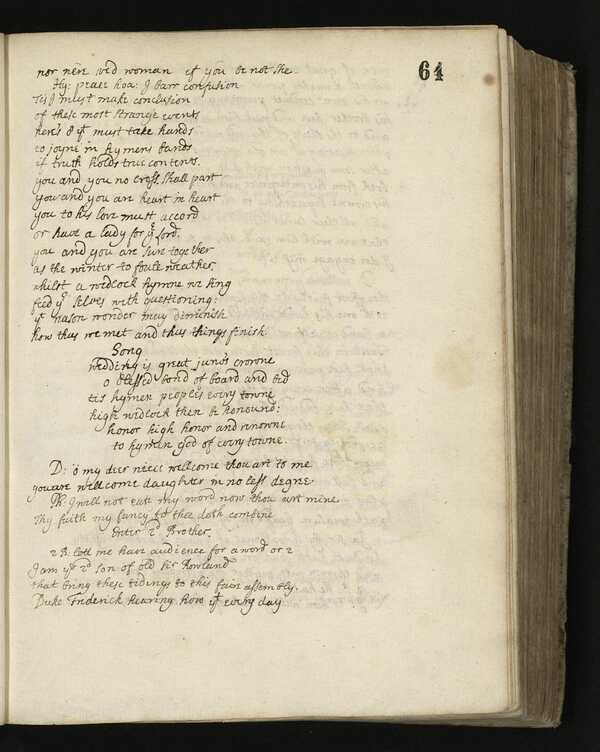 64
nor nere wed woman if you be not she
Hy: peace hoa: I barr confusion
Tis I must make conclusion
of these most strange events
here's 8 yt must take hands
to joyne in hymens bands
if truth holds true contents.
you and you no cross shall part
you and you are heart in heart
you to his love must accord
or have a lady for yr lord.
you and you are sure together
as the winter to foule weather.
whilst a wedlock hymne we sing
feed yr selves with questioning:
yt reason wonder may diminish
how thus we met and thus things finish
Song
wedding is great juno's crowne
o blessed bond of board and bed
tis hymen peoples every towne
high wedlock then be honourd:
honor high honor and renowne
to hymen god of every towne.
D: o my deer neece wellcome thou art to me
you are wellcome daughter in no less degree
Ph: I will not eate my word now thou art mine
Thy faith my fancy to thee doth combine
Enter 2d Brother.
2 B: lett me have audience for a word or 2
I am ye 2d son of old Sir Rowland
that bring these tidings to this fair assembly.
Duke Frederick hearing how yt every day